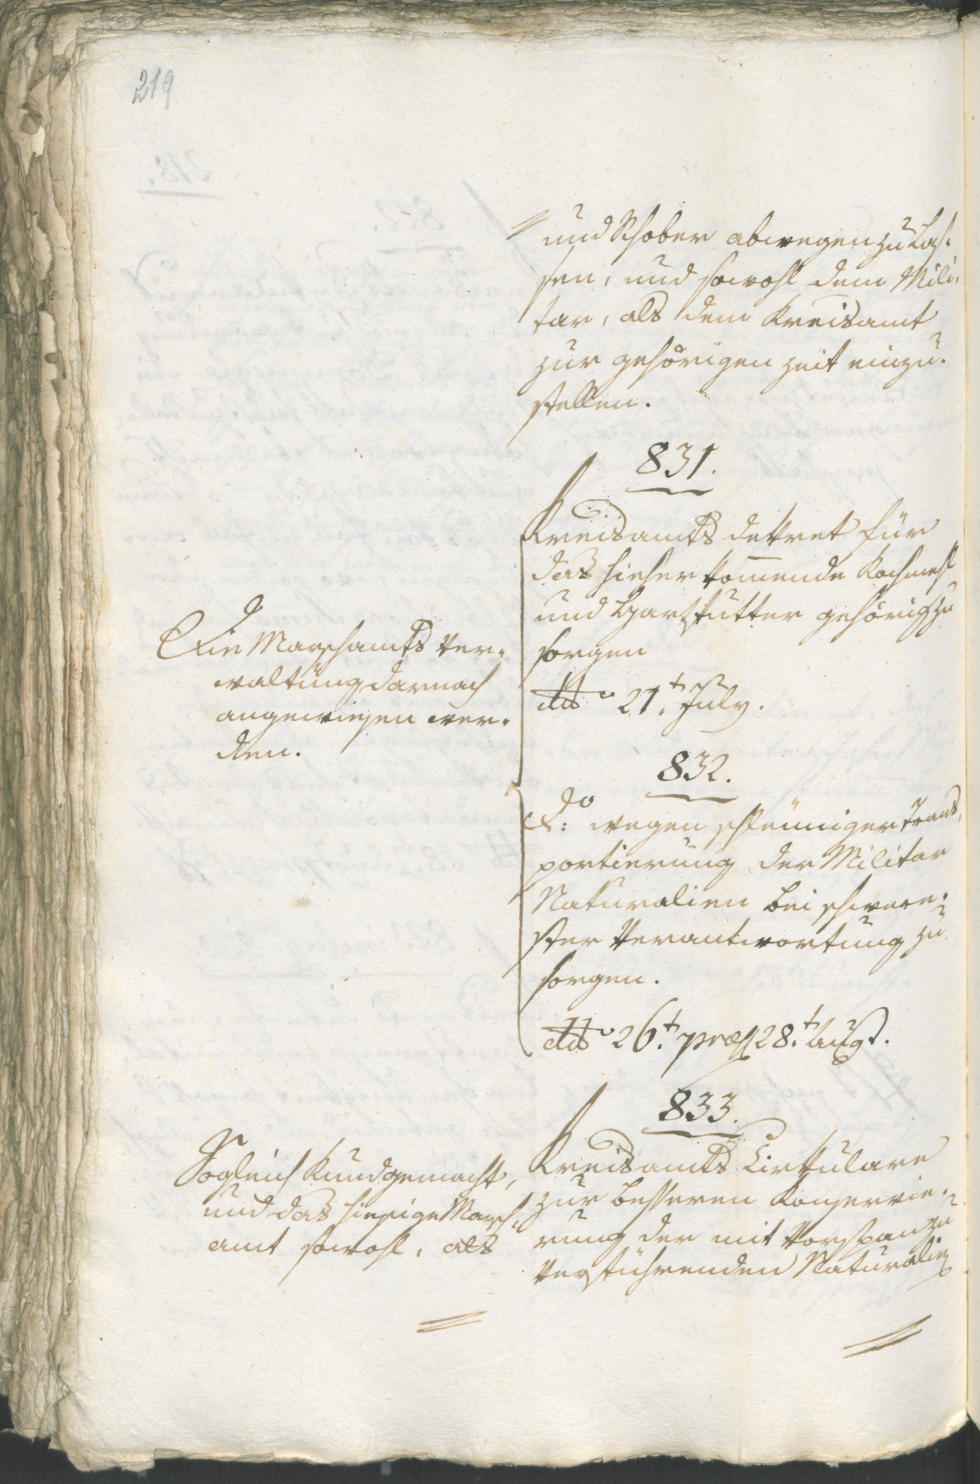 219
und Schober abwegen zu las¬
sen, und sowohl dem Mili¬
tar, als dem Kreisamt
zur gehörigen zeit einzu¬
stellen.
831.
Kreisamts dekret für
das hieher kommende Kochmehl
und Hartfutter gehörig zu
sorgen
dto 21t July.
Die Marschamts Ver¬
waltung darnach
angewiesen wer¬
den.
832.
do: wegen schleüniger Trans¬
portierung der Militar
Naturalien bei schwere¬
ster Verantwortung zu
sorgen.
dto 26t praes 28t Augst.
833.
Kreisamts Cirkulare
zur besseren Konservie¬
rung der mit Vorspan zu
Verführenden Naturalien
Sogleich Kundgemacht,
und das hiesige Marsch¬
amt sowohl, als